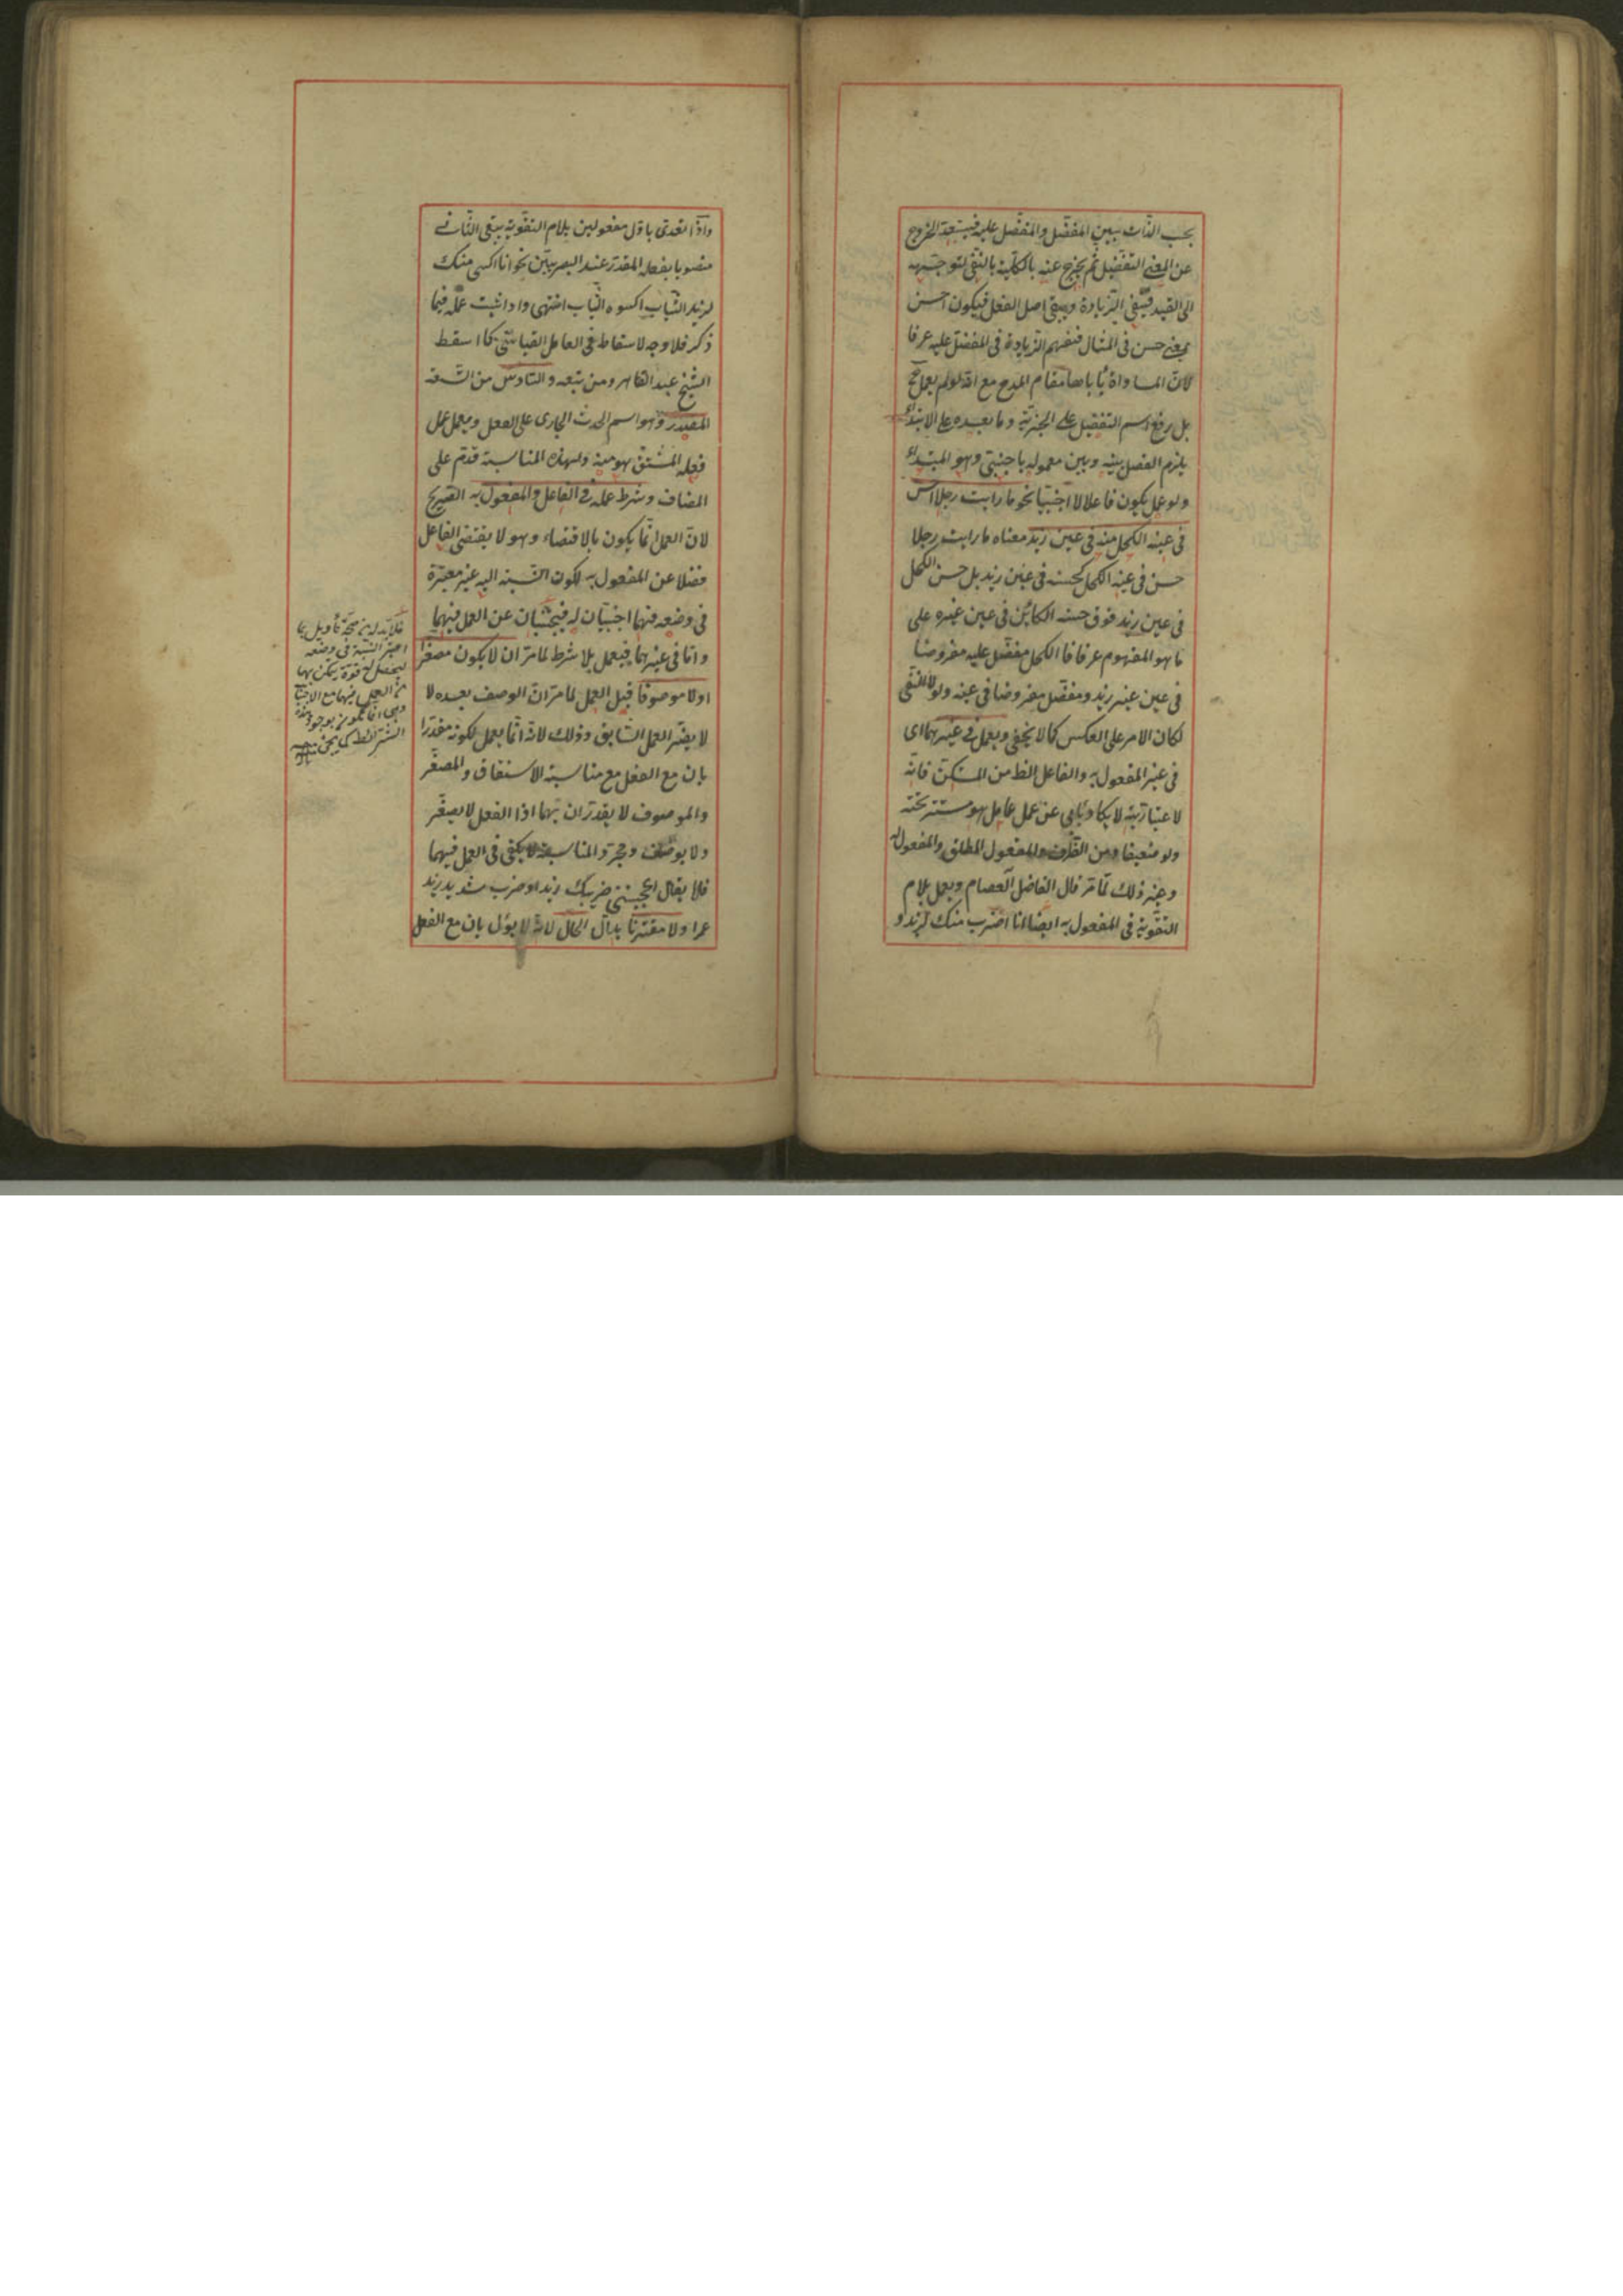 بحسب الذات بين المفضل والمفضل عليه فيستعد للخروج
عن المعنى التفضيل ثم يخرج عنه بالكلية بالنفى لتوجهه
الى القيد فينفى الزيادة ويبقى اصل الفعل فيكون احسن
بمعنى حسن فى المثال فتفهم الزيادة فى المفضل عليه عرفا
لان المساواة يأباها مقام المدح مع انه لو لم يعمل ح
بل رفع اسم التفضيل على الخبرية وما بعده على الابتداء
يلزم الفصل بينه وبين معموله باجنبى وهو المبتداء
ولو عمل يكون فاعلا لا اجنبيا نحو ما رايت رجلا احسن
فى عينه الكحل منه فى عين زيد معناه ما رايت رجلا
حسن فى عينه الكحل كحسنه فى عين زيد بل حسن الكحل
فى عين زيد فوق حسنه الكائن فى عين غيره على
ما هو المفهوم عرفا فالكحل مفضل عليه مفروضا
فى عين غير زيد ومفضل مفروضا فى عينه ولولا النفى
لكان الامر على العكس كما لا يخفى ويعمل فى غيرهما اى
فى غير المفعول به والفاعل الظ من المستكن فانه
لاعتباريته لا يكاد يأبى عن عمل عامل هو مستتر تحته
ولو ضعيفا ومن الظرف والمفعول المطلق والمفعول له
وغير ذلك لما مر قال الفاضل العصام ويعمل بلام
التقوية فى المفعول به ايضا انا اضرب منك لزيد و
واذا تعدى باول مفعولين بلام التقوية يبقى الثانى
منصوبا بفعله المقدر عند البصريين نحو انا اكسى منك
لزيد الثياب اكسوه الثياب انتهى واذا ثبت عمله فيما
ذكر فلا وجه لاسقاطه فى العامل القياسى كما اسقط
الشيخ عبد القاهر ومن تبعه والسادس من التسعة
المصدر وهو اسم الحدث الجارى على الفعل ويعمل عمل
فعله المشتق هو منه ولهذه المناسبة قدم على
المضاف وشرط عمله فى الفاعل والمفعول به الصريح
لان العمل انما يكون بالاقتضاء وهو لا يقتضى الفاعل
فضلا عن المفعول به لكون النسبة اليه غير معتبرة
فى وضعه فهما اجنبيان له فيجتنبان عن العمل فيهما
واما فى غيرهما فيعمل بلا شرط لما مر ان لا يكون مصغرا
اولا موصوفا قبل العمل لما مر ان الوصف بعده لا
لا يضر العمل السابق وذلك لانه انما يعمل لكونه مقدرا
بان مع الفعل مع مناسبة الاشتقاق والمصغر
والموصوف لا يقدران بهما اذا الفعل لا يصغر
ولا يوصف ومجرد المناسبة لا يكفى فى العمل فيهما
فلا يقال اعجبنى ضريبك زيدا وضرب شديد زيد
عمرا ولا مقترنا بدال الحال لانه لا يؤل بان مع الفعل
فلا بد له من صحة تأويل بما
اعتبر النسبة فى وضعه
ليحصل له قوة يتمكن بها
من العمل فيهما مع الاجنبية
وهى انما تكون بوجود هذه
الشرائط كما يجئ